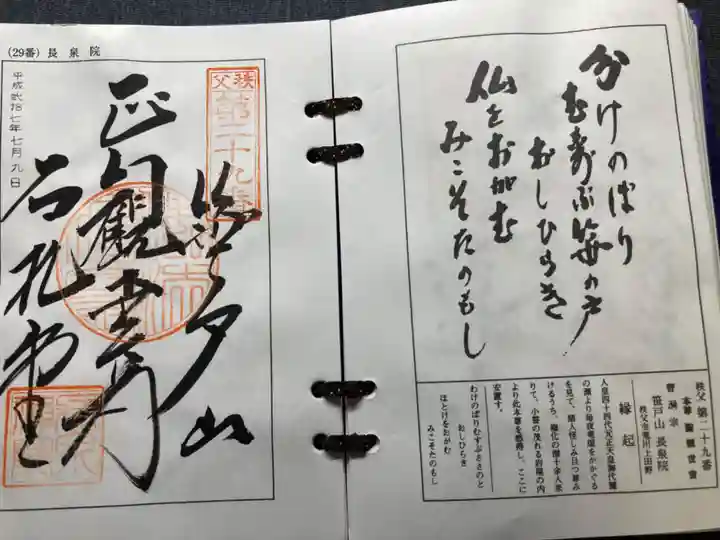 (29番) 長泉院
平成弐拾七年七月九日
秩父
第二十九番
笹戸山
正観世音
石札堂
分けのぼり
むすぶ笹の戸
おしひらき
仏をおがむ
みこそたのもし
秩父第二十九番
本尊 聖観世音
曹洞宗
笹戸山 長泉院
秩父市荒川上田野
縁起
人皇四十四代元正天皇御代
の淵より毎夜竜燈をかかぐる
を見て、諸人怪しみ且つ尊み
けるうち、
りて、小笹の茂れる岩屋の内
より此本尊を感得し、ここに
安置す。
わけのぼりむすぶささのと
おしひらき
ほとけをおがむ
みこそたのもし